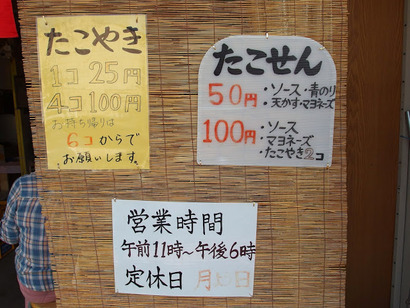 たこやき
1コ 25円
4コ 100円
お持ち帰りは
6コからで
お願いします。
たこせん
50円・ソース・青のり
・天かす・マヨネーズ
100円・ソース
・マヨネーズ
・たこやき2コ
営業時間
午前11時〜午後6時
定休日 月 日